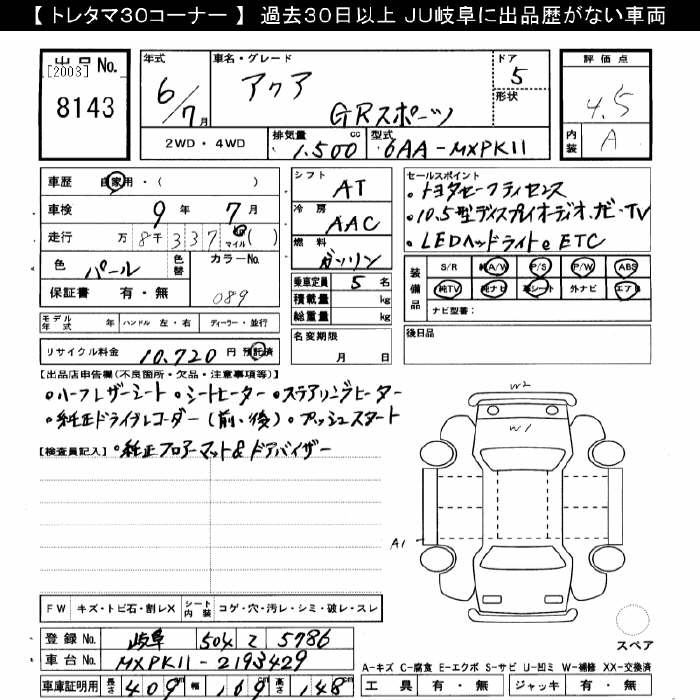 【 トレタマ30コーナー 】 過去30日以上 JU岐阜に出品歴がない車両
出品 No. 年式 車名・グレード ドア 評価点
[2003] アクア 5
8143 6/7月 GRスポーツ 形状 4.5
2WD・4WD 排気量 1,500 cc 型式 6AA-MXPK11 内装 A
車歴 自家用・( ) シフト AT セールスポイント
車検 9年 7月 冷房 AAC ・トヨタセーフティセンス
走行 万 8千337 マイル ( ) 燃料 ガソリン ・10.5型ディスプレイオーディオ.ナビ・TV
・LEDヘッドライト・ETC
色 パール 色替 カラーNo. 089 乗車定員 5 名
保証書 有・無 積載量 kg
総重量 kg
装備品 S/R 純A/W P/S P/W ABS
純TV 純ナビ 革シート 外ナビ エアB
ナビ型番:
モデル年式 年 ハンドル 左・右 ディーラー・並行 名変期限 月 日 後日品
リサイクル料金 10,720 円 預託済
【出品店申告欄(不良箇所・欠品・注意事項等)】
・ハーフレザーシート・シートヒーター・ステアリングヒーター
・純正ドライブレコーダー(前、後)・プッシュスタート
【検査員記入】・純正フロアーマット&ドアバイザー
W2
W1
A1
FW キズ・トビ石・割レX シート内装 コゲ・穴・汚レ・シミ・破レ・スレ
スペア
登録No. 岐阜 504 て 5786
車台No. MXPK11-2193429
A-キズ C-腐食 E-エクボ S-サビ U-凹ミ W-補修 XX-交換済
車庫証明用 長さ 409 幅 169 高さ 148 工具 有・無 ジャッキ 有・無